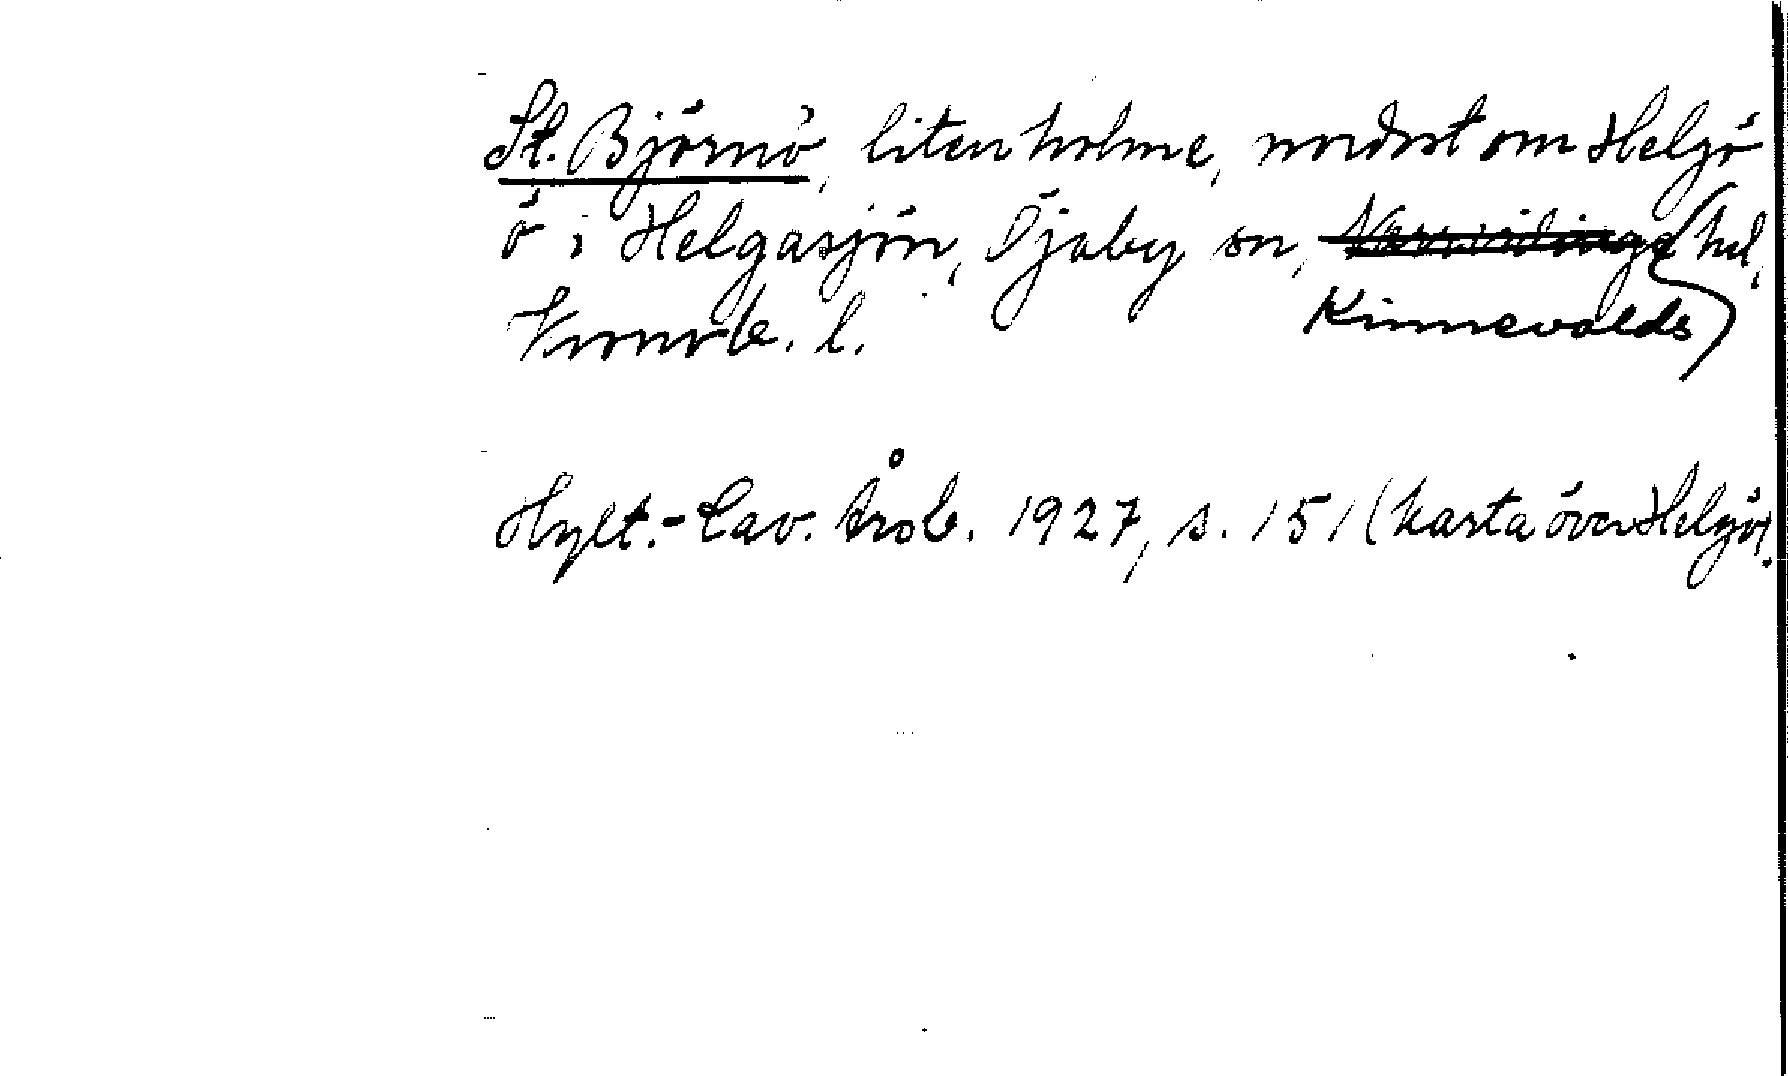 St. Björnö, liten holme, nordost om Helgö
ö i Helgasjön, Öjaby sn, Norrvidinge hd,
Kinnevalds
Kronob. l.
Hylt.-Cav. årsb. 1927, s. 151 (karta över Helgö).